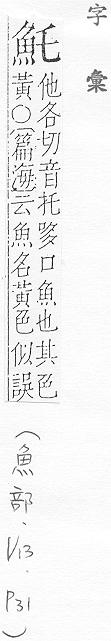 字彙
魠
他各切音托哆口魚也其色
黃○篇海云魚名黃色似誤
(魚部.1/13.P31)